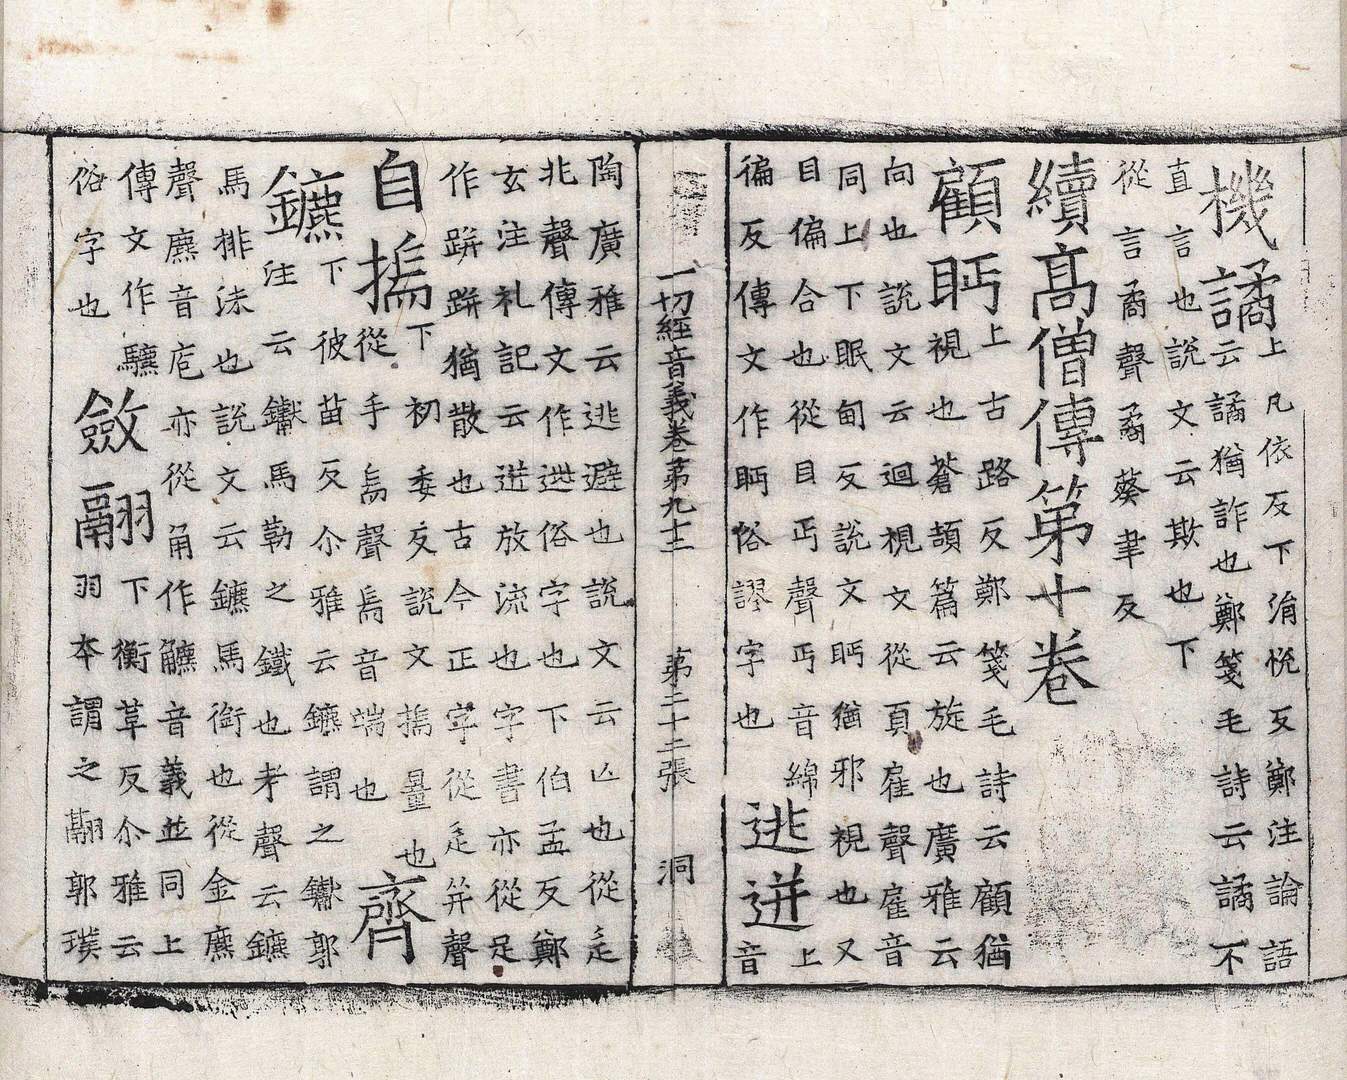 機譎上凡依反下涓悅反鄭注論語
云譎猶詐也鄭箋毛詩云譎不
直言也說文云欺也下
從言矞聲矞葵聿反
續髙僧傳第十卷
顧眄上古路反鄭箋毛詩云顧猶
視也蒼頡篇云旋也廣雅云
向也說文云迴視文從頁雇聲雇音
同上下眠甸反說文眄猶邪視也又
目偏合也從目丏聲丏音綿
徧反傳文作眄俗謬字也
逃迸上
音
一切經音義卷第九十三 第二十二張 洞
陶廣雅云逃避也說文云亾也從辵
兆聲傳文作迯俗字也下伯孟反鄭
玄注礼記云迸放流也字書亦從足
作跰跰猶散也古今正字從辵笄聲
自揣下初委反說文揣量也
從手耑聲耑音端也
齊鑣下彼苗反尒雅云鑣謂之钀郭
注云钀馬勒之鐵也考聲云鑣
馬排沫也說文云鑣馬銜也從金麃
聲麃音庖亦從角作䚩音義並同上
傳文作
俗字也
斂翮下衡革反尒雅云
羽本謂之翮郭璞